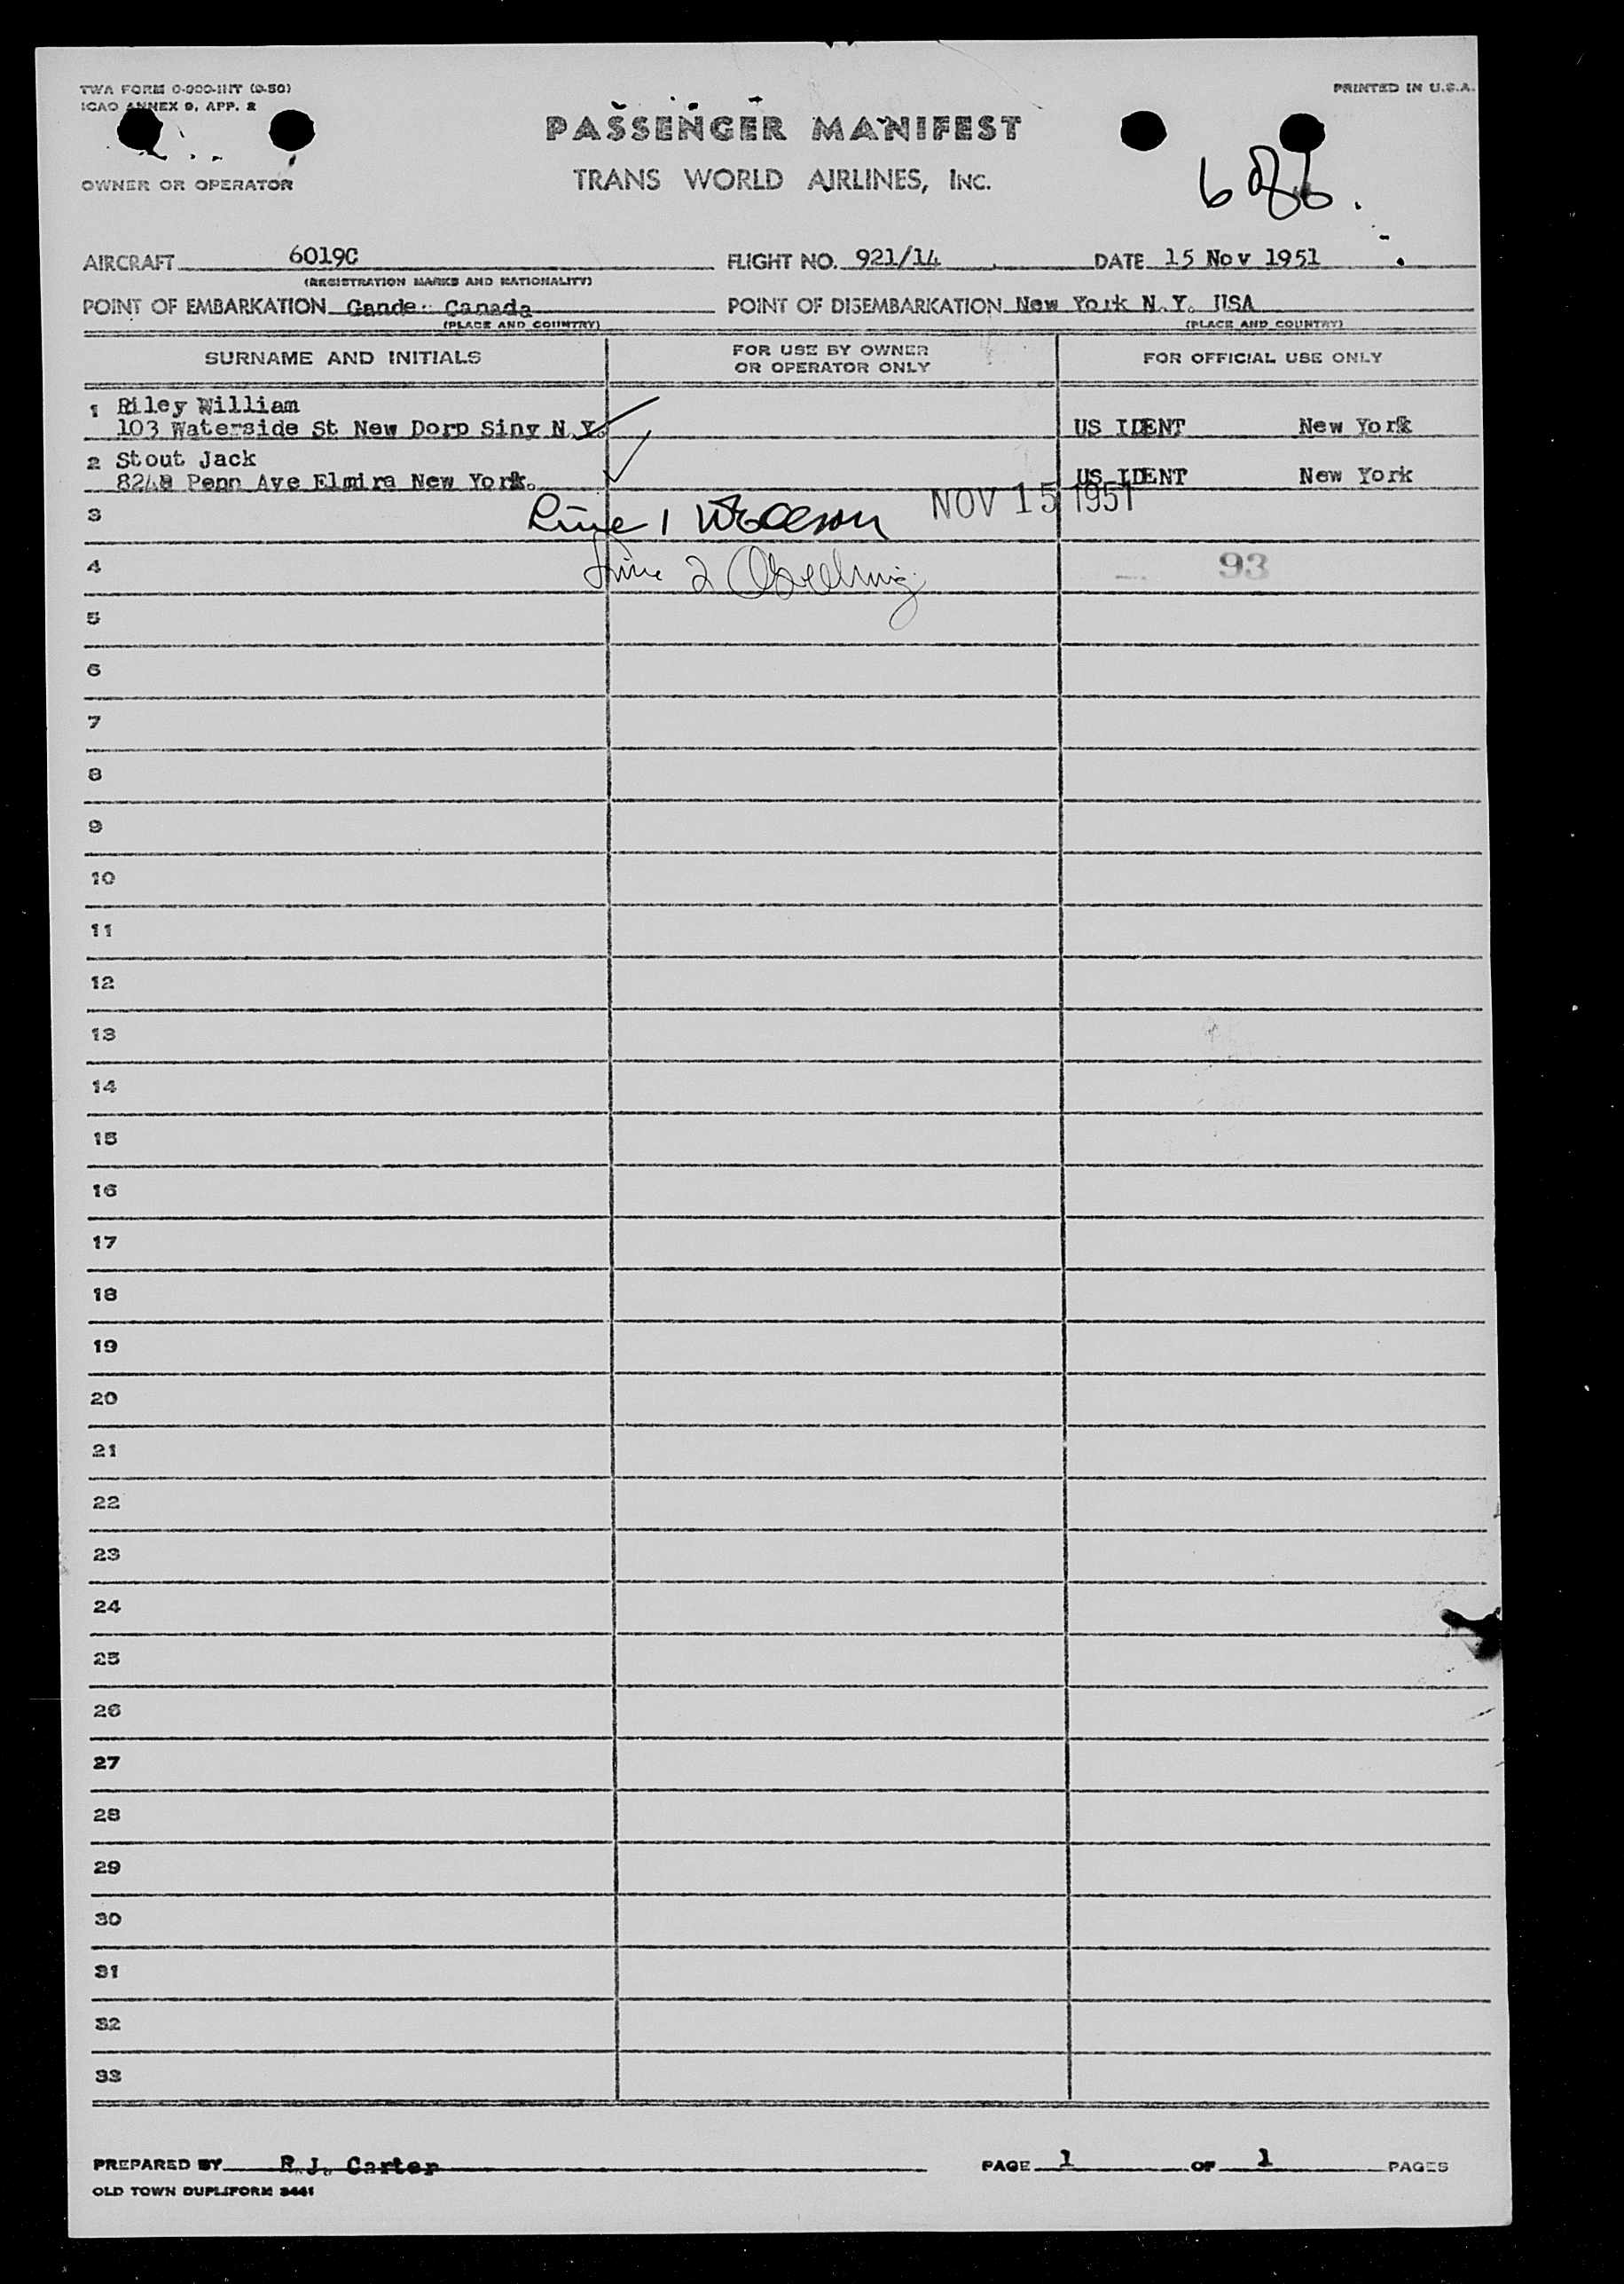 TWA FORM 0-900-INT (9-50)
ICAO ANNEX 9, APP. 2
PRINTED IN U.S.A.
PASSENGER MANIFEST
TRANS WORLD AIRLINES, INC.
6 of 6.
OWNER OR OPERATOR
AIRCRAFT 6019C FLIGHT NO. 921/14 DATE 15 Nov 1951
(REGISTRATION MARKS AND NATIONALITY)
POINT OF EMBARKATION Gander Canada POINT OF DISEMBARKATION New York N.Y. USA
(PLACE AND COUNTRY) (PLACE AND COUNTRY)
SURNAME AND INITIALS FOR USE BY OWNER OR OPERATOR ONLY FOR OFFICIAL USE ONLY
1 Riley William
103 Waterside St New Dorp Siny N.Y. US IDENT New York
2 Stout Jack
Penn Ave Elmira New York. US IDENT New York
NOV 15 1951
3 Line 1
4 Line 2 93
5
6
7
8
9
10
11
12
13
14
15
16
17
18
19
20
21
22
23
24
25
26
27
28
29
30
31
32
33
PREPARED BY R.J. Carter PAGE 1 OF 1 PAGES
OLD TOWN DUPLIFORM 3441